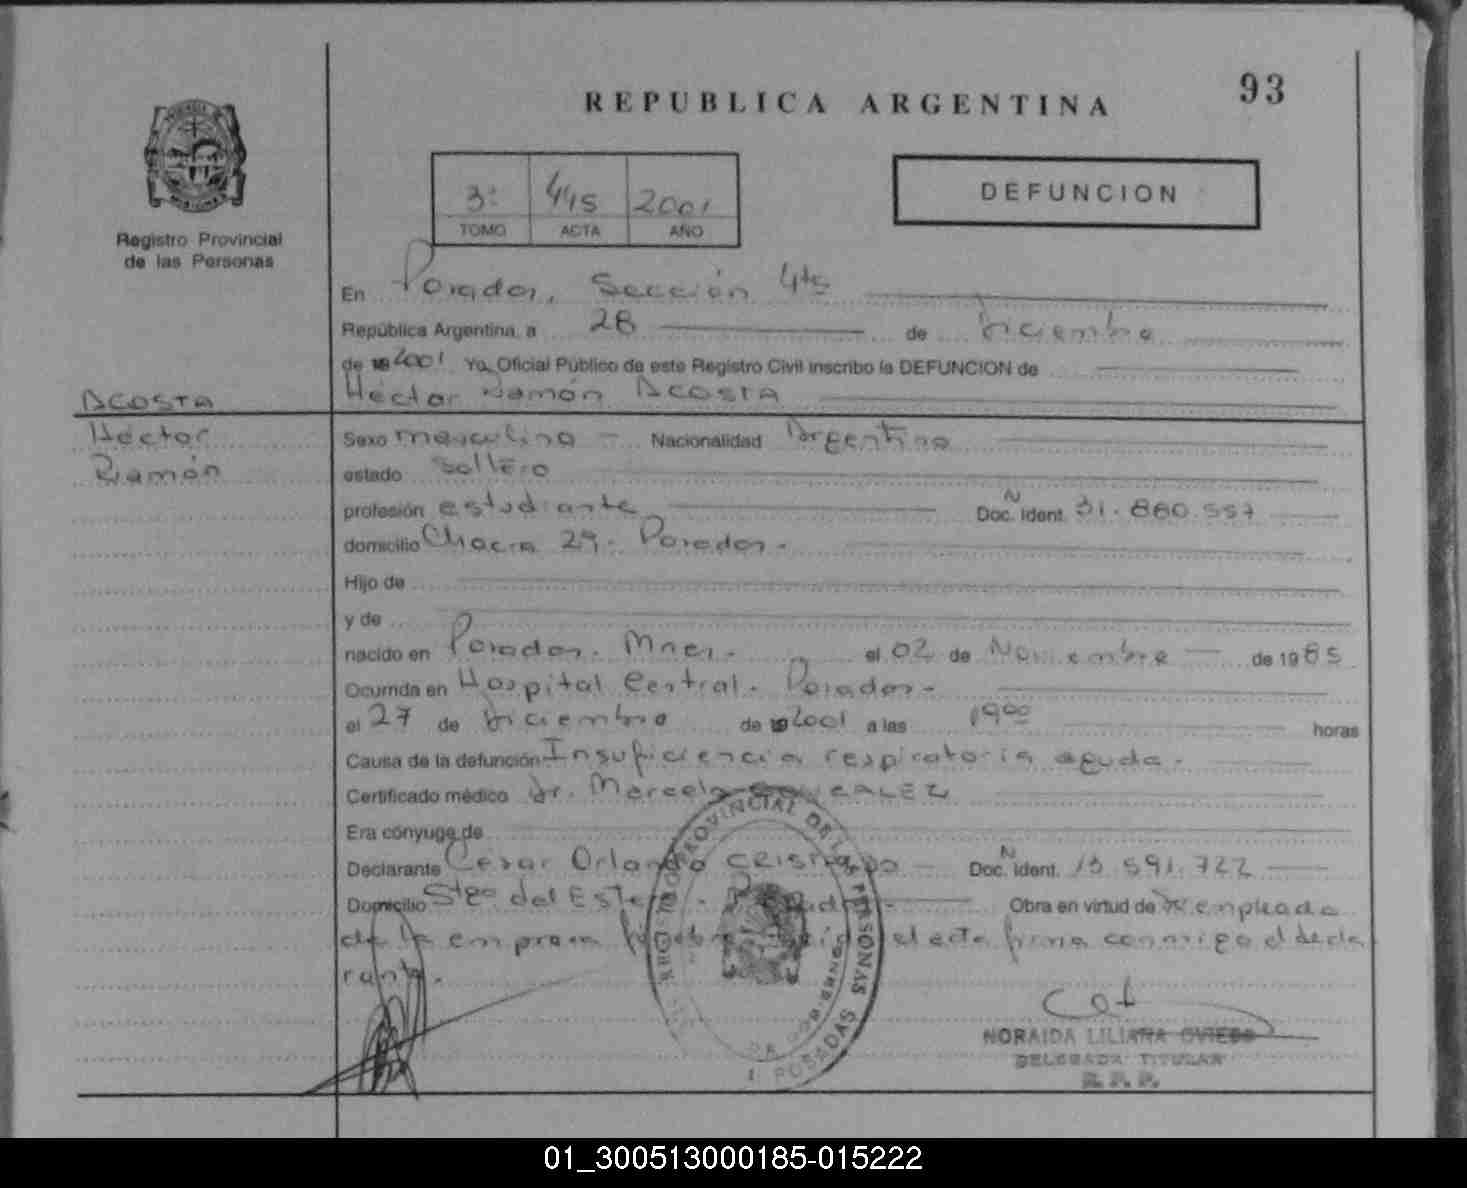 93
REPUBLICA ARGENTINA
3º 445 2001
TOMO ACTA AÑO
DEFUNCION
Registro Provincial
de las Personas
En Posadas, Sección 4ta
República Argentina, a 28 de Diciembre
de 19 2001 Yo, Oficial Público de este Registro Civil inscribo la DEFUNCION de
Héctor Ramón ACOSTA
ACOSTA
Héctor
Ramón
Sexo masculino - Nacionalidad Argentina
estado soltero
profesión estudiante Doc. Ident. N 31.860.557
domicilio Chacra 29 - Posadas -
Hijo de
y de
nacido en Posadas - Mnes - el 02 de Noviembre de 1985
Ocurrida en Hospital Central - Posadas -
el 27 de Diciembre de 19 2001 a las 19 00 horas
Causa de la defunción Insuficiencia respiratoria aguda -
Certificado médico Dr. Marcelo
Era cónyuge de
Declarante César Orlando CRISTALDO - Doc. Ident. N 13.591.722
Domicilio Stgo del Estero - Posadas - Obra en virtud de Sr. empleado
de la empresa el acta firma conmigo el decla
rante.
REGISTRO PROVINCIAL DE LAS PERSONAS
POSADAS
NORAIDA LILIANA OVIEDO
DELEGADA TITULAR
R. P. P.
01_300513000185-015222